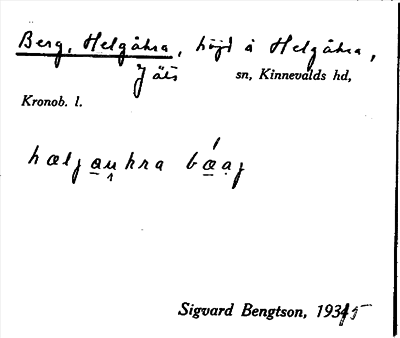 Berg, Helgåkra, höjd å Helgåkra,
Jäts sn, Kinnevalds hd,
Kronob. l.
hæljau̯kra bæaj
Sigvard Bengtson, 1935